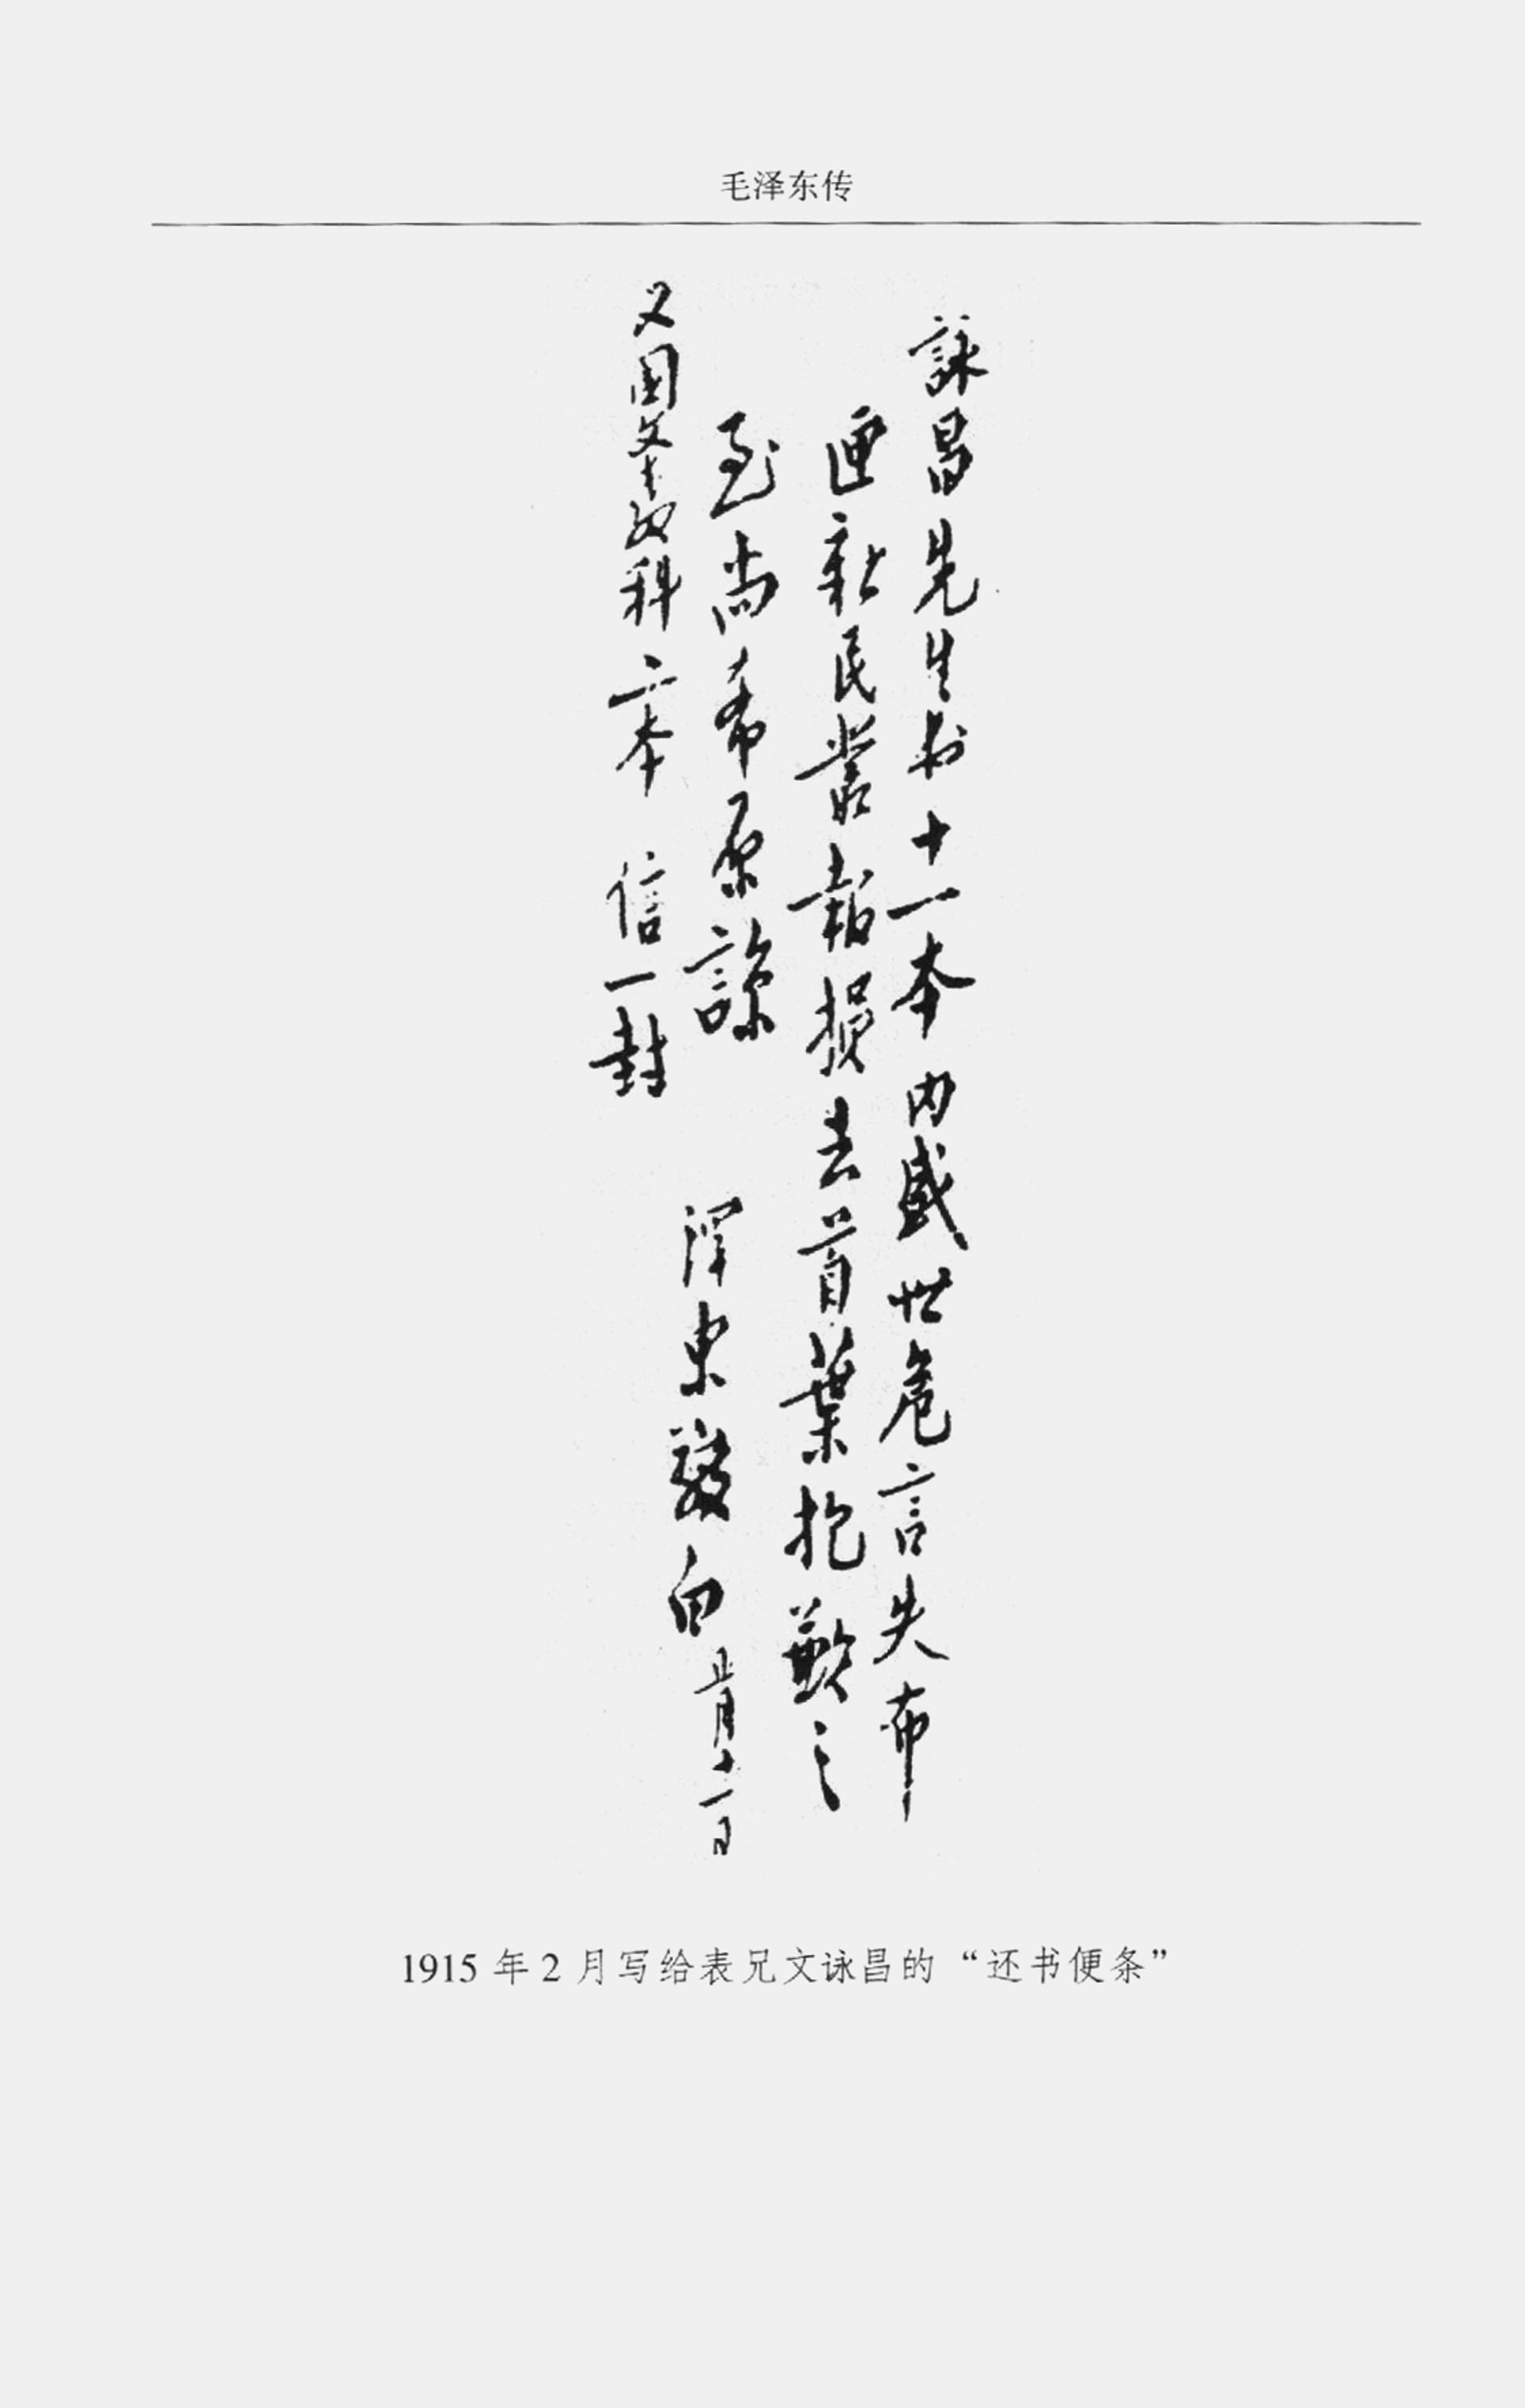 毛泽东传
詠昌先生书十一本内盛世危言失布
匣新民叢報損去首葉抱歉之
至尚希原諒
澤東敬白 正月十一日
又国文教科二本 信一封
1915 年 2 月写给表兄文诒昌的“还书便条”